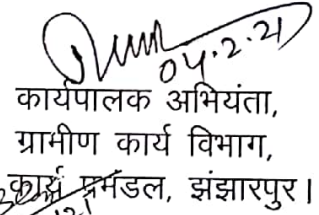 04.2.21
कार्यपालक अभियंता,
ग्रामीण कार्य विभाग,
कार्य प्रमंडल, झंझारपुर।